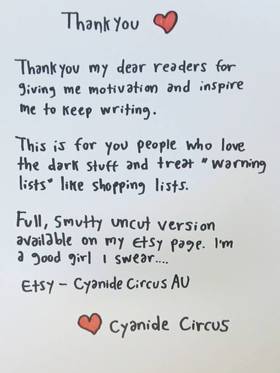 Thank you
Thank you my dear readers for
giving me motivation and inspire
me to keep writing.
This is for you people who love
the dark stuff and treat "warning
lists" like shopping lists.
Full, smutty uncut version
available on my Etsy page. I'm
a good girl I swear....
Etsy - Cyanide Circus AU
Cyanide Circus